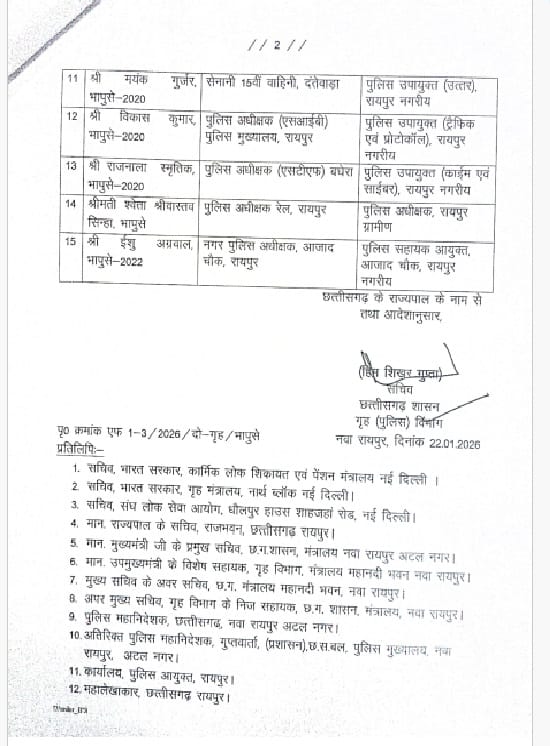 // 2 //
11 श्री मयंक गुर्जर, सेनानी 15वीं वाहिनी, दंतेवाड़ा पुलिस उपायुक्त (उत्तर),
भापुसे–2020 रायपुर नगरीय
12 श्री विकास कुमार, पुलिस अधीक्षक (एसआईबी) पुलिस उपायुक्त (ट्रैफिक
भापुसे–2020 पुलिस मुख्यालय, रायपुर एवं प्रोटोकॉल), रायपुर
नगरीय
13 श्री राजनाला स्मृतिक, पुलिस अधीक्षक (एसटीएफ) बघेरा पुलिस उपायुक्त (क्राईम एवं
भापुसे–2020 साईबर), रायपुर नगरीय
14 श्रीमती श्वेता श्रीवास्तव पुलिस अधीक्षक रेल, रायपुर पुलिस अधीक्षक, रायपुर
सिन्हा, भापुसे ग्रामीण
15 श्री ईशु अग्रवाल, नगर पुलिस अधीक्षक, आजाद पुलिस सहायक आयुक्त,
भापुसे–2022 चौक, रायपुर आजाद चौक, रायपुर
नगरीय
छत्तीसगढ़ के राज्यपाल के नाम से
तथा आदेशानुसार,
(हिम शिखर गुप्ता)
सचिव
छत्तीसगढ़ शासन
गृह (पुलिस) विभाग
पृ0 क्रमांक एफ 1-3/2026/दो-गृह/भापुसे नवा रायपुर, दिनांक 22.01.2026
प्रतिलिपिः–
1. सचिव, भारत सरकार, कार्मिक लोक शिकायत एवं पेंशन मंत्रालय नई दिल्ली ।
2. सचिव, भारत सरकार, गृह मंत्रालय, नार्थ ब्लॉक नई दिल्ली।
3. सचिव, संघ लोक सेवा आयोग, धौलपुर हाउस शाहजहां रोड, नई दिल्ली।
4. मान. राज्यपाल के सचिव, राजभवन, छत्तीसगढ़ रायपुर।
5. मान. मुख्यमंत्री जी के प्रमुख सचिव, छ.ग.शासन, मंत्रालय नवा रायपुर अटल नगर।
6. मान. उपमुख्यमंत्री के विशेष सहायक, गृह विभाग, मंत्रालय महानदी भवन नवा रायपुर।
7. मुख्य सचिव के अवर सचिव, छ.ग. मंत्रालय महानदी भवन, नवा रायपुर।
8. अपर मुख्य सचिव, गृह विभाग के निज सहायक, छ.ग. शासन, मंत्रालय, नवा रायपुर।
9. पुलिस महानिदेशक, छत्तीसगढ़, नवा रायपुर अटल नगर।
10. अतिरिक्त पुलिस महानिदेशक, गुप्तवार्ता, (प्रशासन),छ.स.बल, पुलिस मुख्यालय, नवा
रायपुर, अटल नगर।
11. कार्यालय, पुलिस आयुक्त, रायपुर।
12. महालेखाकार, छत्तीसगढ़ रायपुर।